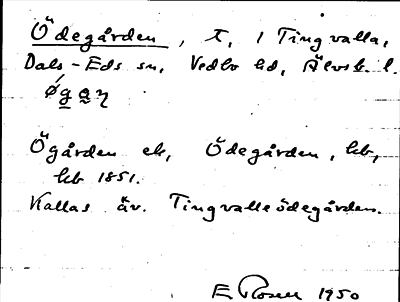 Ödegården, t, 1 Tingvalla,
Dals-Eds sn, Vedbo hd, Älvsb. l.
Ögården ek, Ödegården, hb,
hb 1851.
Kallas äv. Tingvalleödegården.
E Rosell 1950